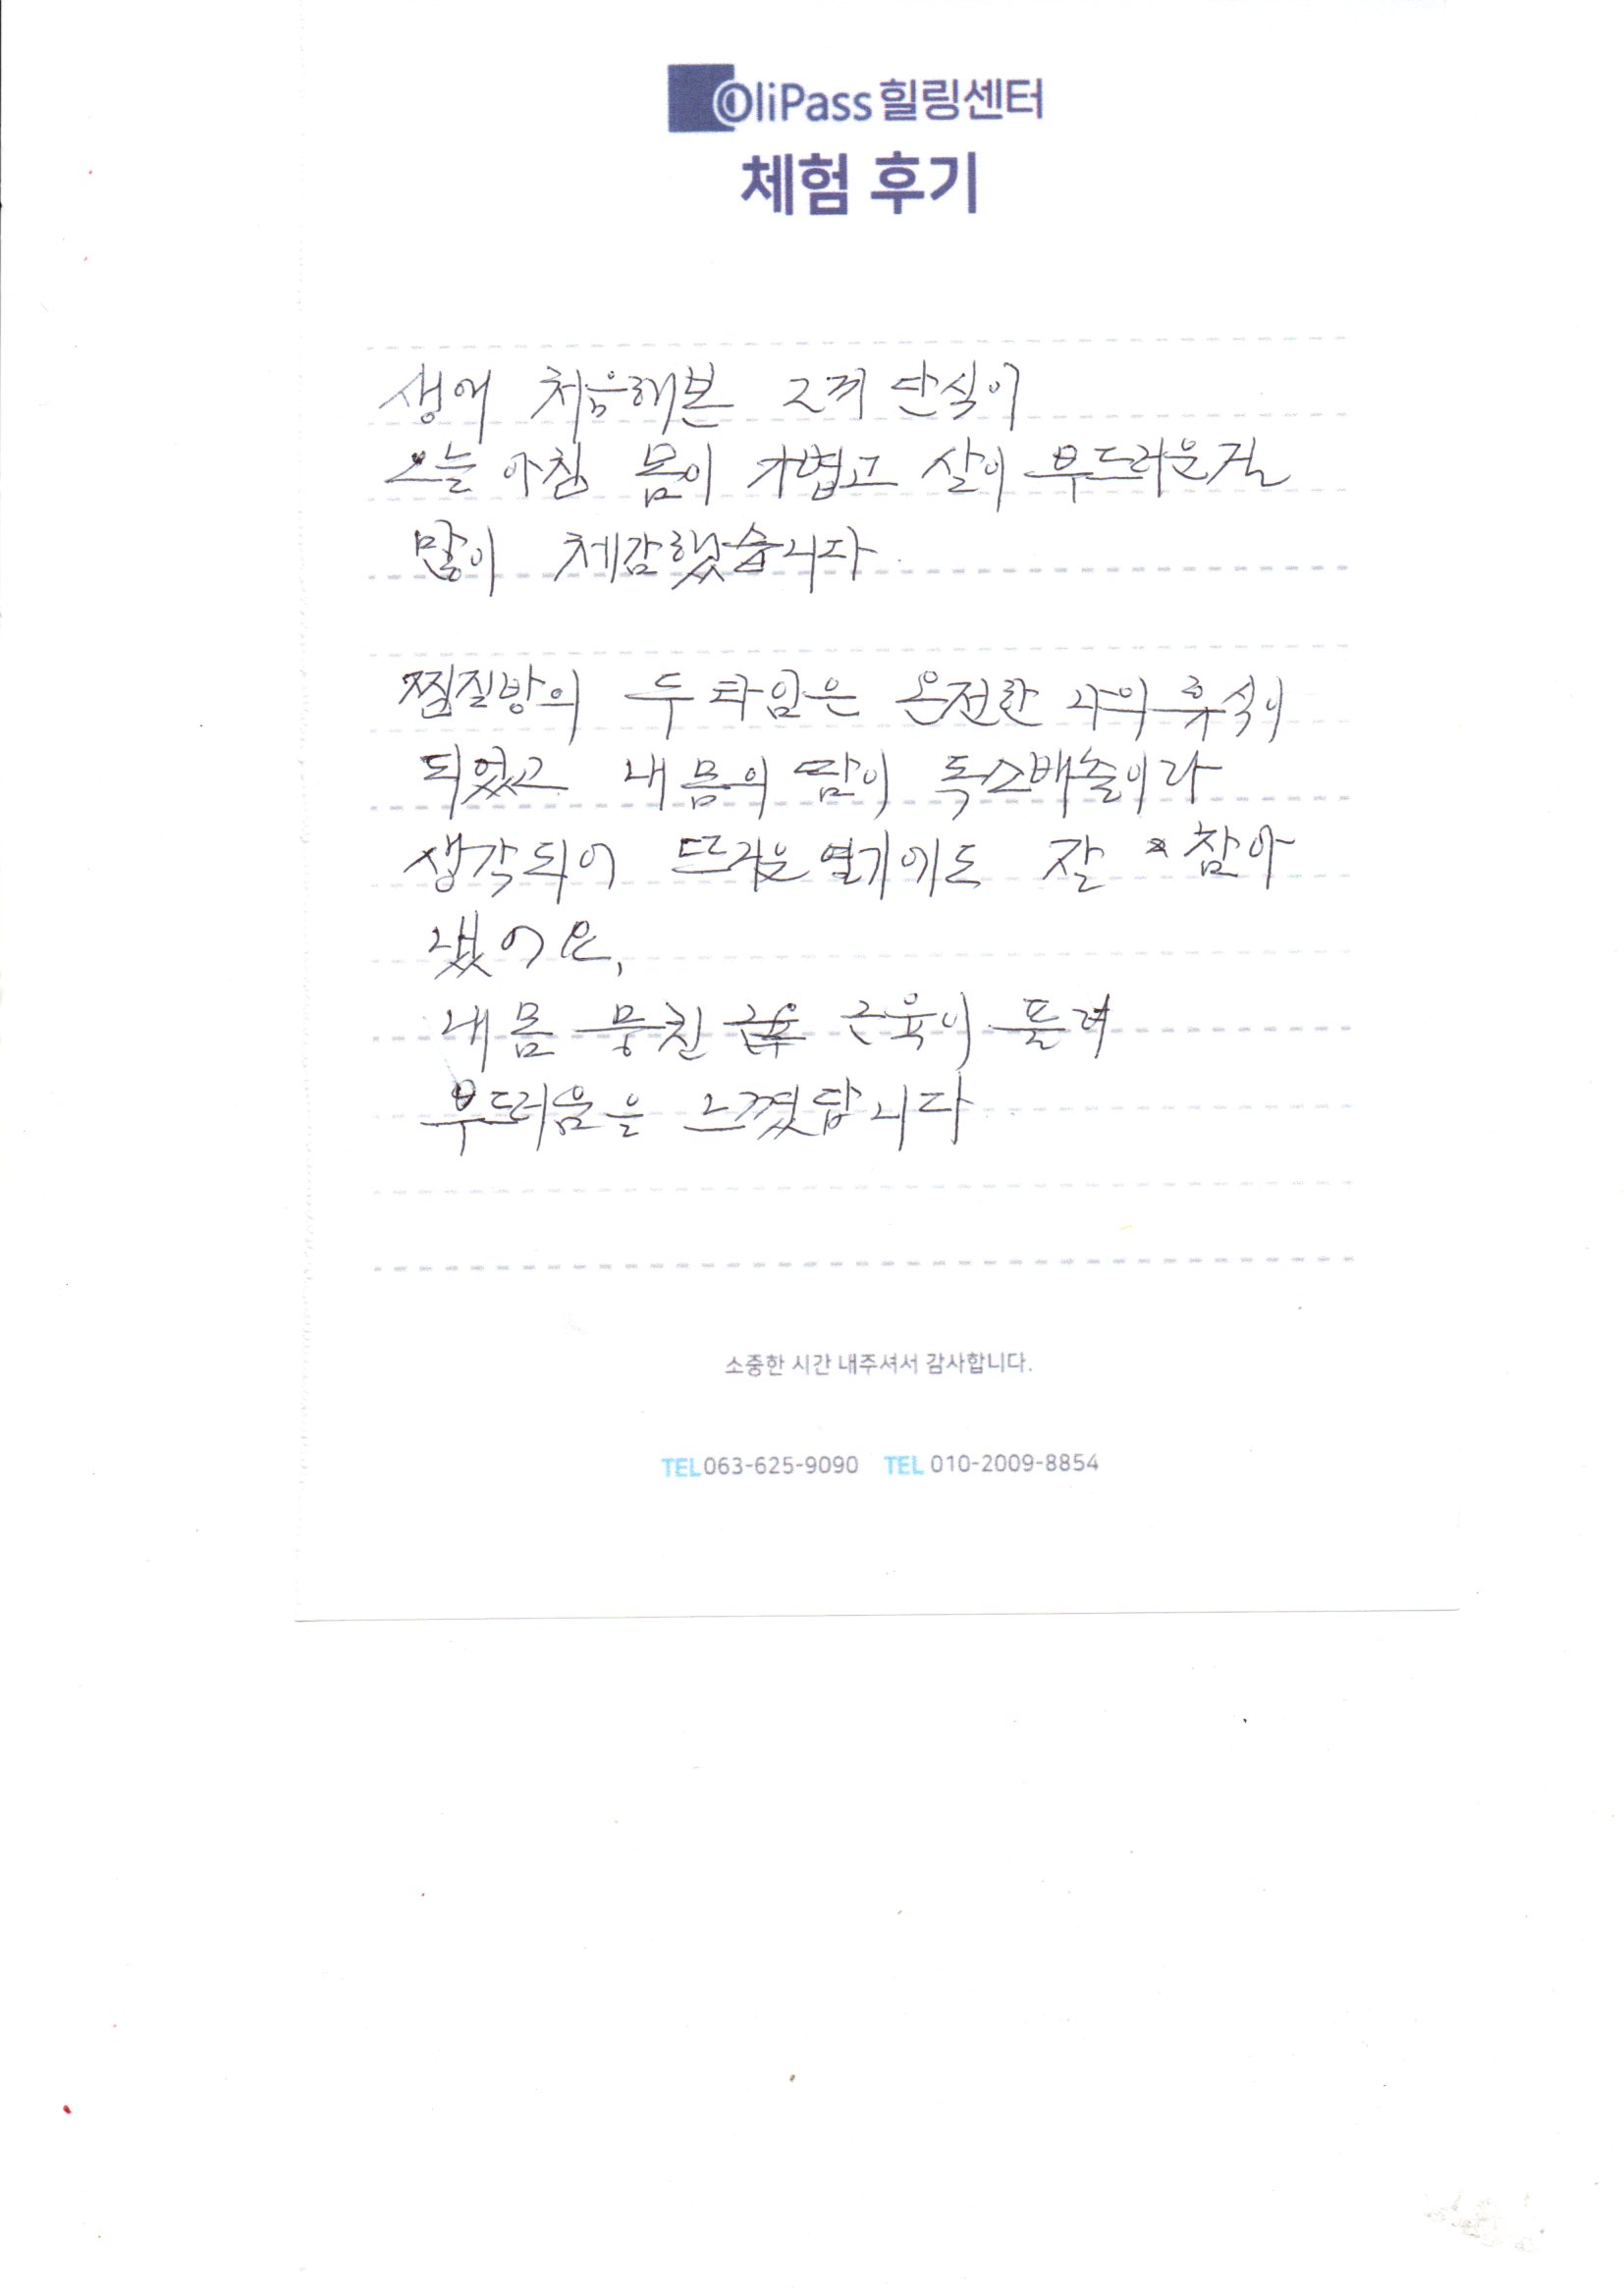 OliPass 힐링센터
체험 후기
생애 처음해본 2끼 단식이
오늘 아침 몸이 가볍고 살이 부드러운걸
많이 체감했습니다.
찜질방의 두 타임은 온전한 나의 휴식이
되었고 내 몸의 땀이 독소배출이라
생각되어 뜨거운 열기에도 잘 참아
냈어요,
내 몸 뭉친 근육이 풀려
부드러움을 느꼈답니다.
소중한 시간 내주셔서 감사합니다.
TEL 063-625-9090 TEL 010-2009-8854